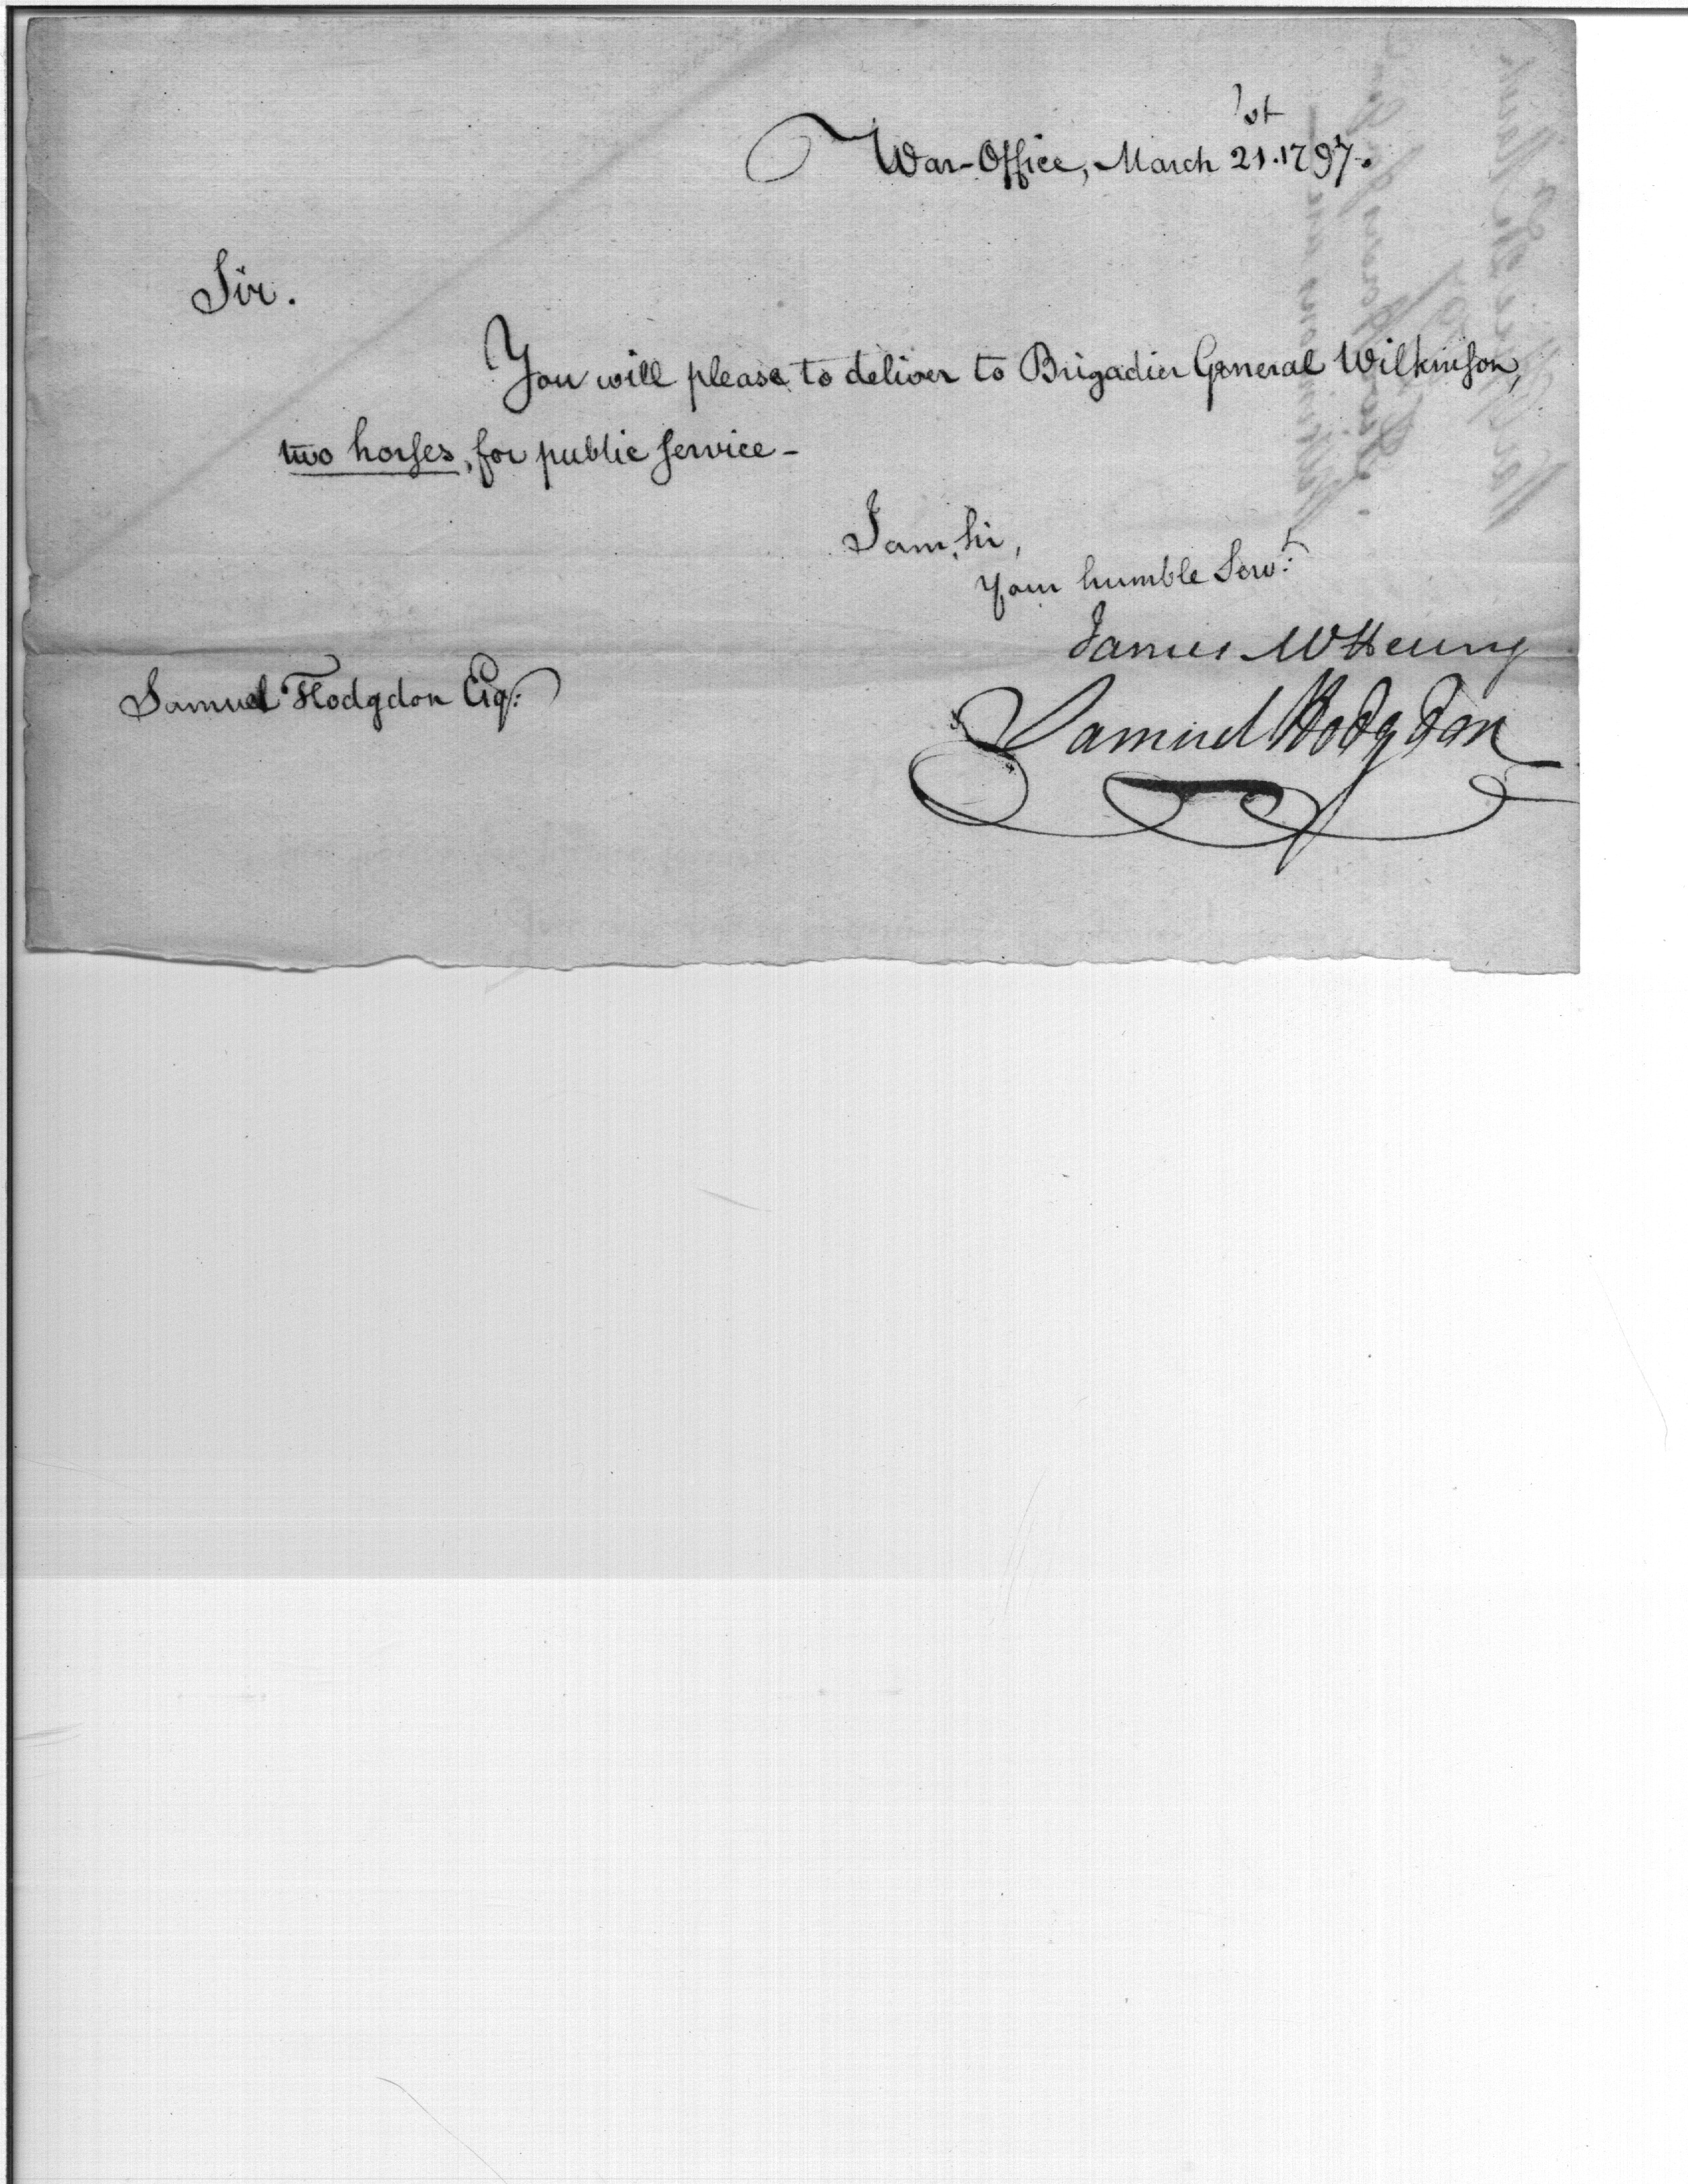 War-Office, March 21st. 1797.
Sir.
You will please to deliver to Brigadier General Wilkinson,
two horses, for public service -
I am, Sir,
Your humble Servt.
James McHenry
Samuel Hodgdon Esq.
Samuel Hodgdon